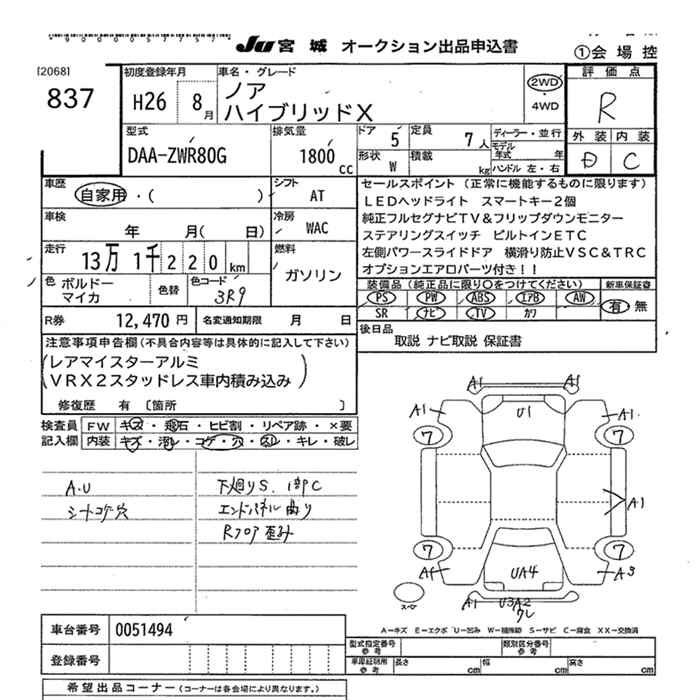 Ju 宮城 オークション出品申込書
①会場控
[2068]
837
初度登録年月
H26 8月
車名・グレード
ノア
ハイブリッドX
2WD
4WD
評価点
R
外装 内装
D C
型式
DAA-ZWR80G
排気量
1800 cc
ドア 5
定員 7人
ディーラー・並行
モデル年式 年
形状 W
積載 kg
ハンドル 左・右
車歴
自家用・( )
シフト
AT
車検
年 月( 日)
冷房
WAC
走行
13万1千220km
燃料
ガソリン
色 ボルドー
マイカ
色替
色コード
3R9
R券 12,470円
名変通知期限 月 日
セールスポイント (正常に機能するものに限ります)
LEDヘッドライト スマートキー2個
純正フルセグナビTV&フリップダウンモニター
ステアリングスイッチ ビルトインETC
左側パワースライドドア 横滑り防止VSC&TRC
オプションエアロパーツ付き!!
装備品 (純正品に限り○をつけてください)
新車保証書
PS PW ABS エアB AW
SR ナビ TV カワ
有・無
後日品
取説 ナビ取説 保証書
注意事項申告欄 (不具合内容等は具体的に記入して下さい)
(レアマイスターアルミ
VRX2スタッドレス車内積み込み)
修復歴 有 [箇所 ]
検査員 FW キズ・飛石・ヒビ割・リペア跡・×要
記入欄 内装 キズ・汚レ・コゲ・穴・スレ・キレ・破レ
A.U
シートコゲ穴
下廻りS.1部C
エンドパネル曲り
Rフロア歪み
A1 A1
A1 U1 A1
7 7
A1
7 7
A4 UA4 A3
スペア
U3A2
ワレ
A−キズ E−エクボ U−凹み W−補修跡 S−サビ C−腐食 XX−交換済
車台番号 0051494
登録番号
型式指定番号
参考
類別区分番号
参考
車庫証明用
参考
長さ cm
幅 cm
高さ cm
希望出品コーナー (コーナーは各会場により異なります。)